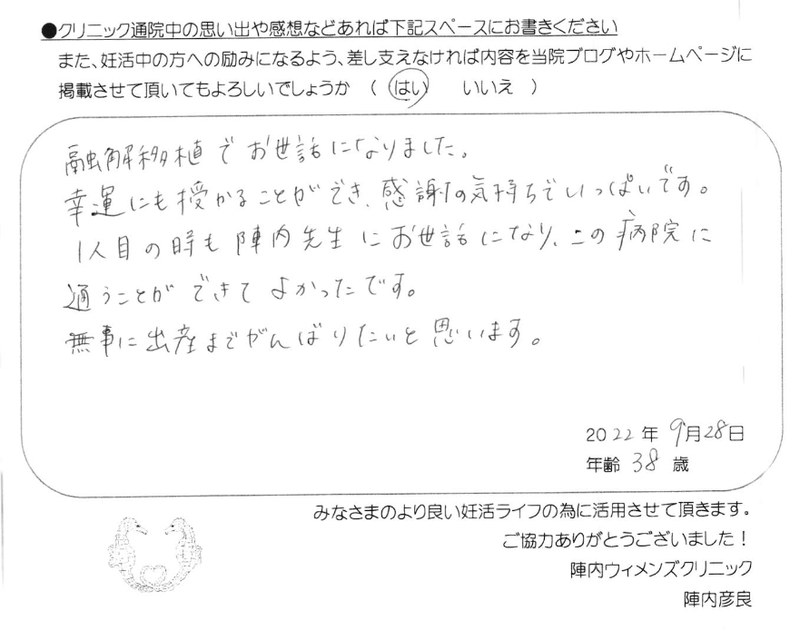 ●クリニック通院中の思い出や感想などあれば下記スペースにお書きください
また、妊活中の方への励みになるよう、差し支えなければ内容を当院ブログやホームページに
掲載させて頂いてもよろしいでしょうか （ はい　　いいえ ）
融解移植でお世話になりました。
幸運にも授かることができ、感謝の気持ちでいっぱいです。
1人目の時も陣内先生にお世話になり、この病院に
通うことができてよかったです。
無事に出産までがんばりたいと思います。
2022 年 9月28日
年齢 38 歳
みなさまのより良い妊活ライフの為に活用させて頂きます。
ご協力ありがとうございました！
陣内ウィメンズクリニック
陣内彦良